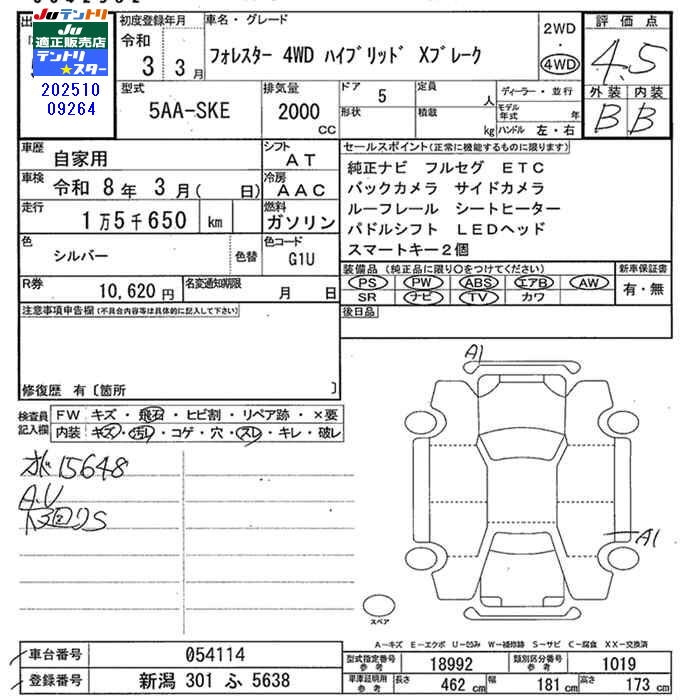 JUテントリ
JU
適正販売店
テントリ
★スター
202510
09264
初度登録年月
令和
3 3月
車名・グレード
フォレスター 4WD ハイブリッド Xブレーク
2WD
・
4WD
評価点
4.5
外装 内装
B B
型式
5AA-SKE
排気量
2000
cc
ドア
5
形状
定員
人
積載
kg
ディーラー・並行
モデル年式 年
ハンドル 左・右
車歴
自家用
シフト
AT
車検
令和 8年 3月( 日)
冷房
AAC
走行
1万5千650 km
燃料
ガソリン
色
シルバー
色替
色コード
G1U
R券
10,620円
名変通知期限
月 日
セールスポイント(正常に機能するものに限ります)
純正ナビ フルセグ ETC
バックカメラ サイドカメラ
ルーフレール シートヒーター
パドルシフト LEDヘッド
スマートキー2個
装備品(純正品に限り○をつけてください)
PS PW ABS エアB AW
SR ナビ TV カワ
新車保証書
有・無
後日品
注意事項申告欄(不具合内容等は具体的に記入して下さい)
修復歴 有〔箇所 〕
検査員
記入欄
FW キズ・飛石・ヒビ割・リペア跡・×要
内装 キズ・汚レ・コゲ・穴・スレ・キレ・破レ
15648
A.U
下回りS
A1
A1
スペア
A－キズ E－エクボ U－凹み W－補修跡 S－サビ C－腐食 XX－交換済
車台番号 054114
登録番号 新潟 301 ふ 5638
型式指定番号
参考
18992
類別区分番号
参考
1019
車庫証明用
参考
長さ 462 cm 幅 181 cm 高さ 173 cm